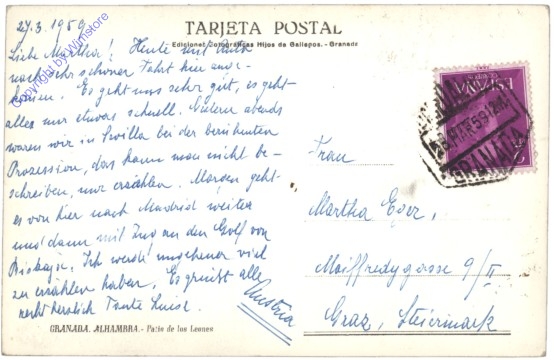 TARJETA POSTAL
Ediciones Fotográficas Hijos de Gallegos.- Granada
27.3.1959
Liebe Martha! Heute mit
nach sehr schöner Fahrt hier ange-
kommen. Es geht uns sehr gut, es geht
alles nur etwas schnell. Gestern abends
waren wir in Sevilla bei der berühmten
Prozession, das kann man nicht be-
schreiben, nur erzählen. Morgen geht
es von hier nach Madrid weiter
und dann mit Zug an den Golf von
Biskaja. Ich werde ungeheuer viel
zu erzählen haben. Es grüsst alle
recht herzlich Tante Luise.
GRANADA. ALHAMBRA.- Patio de los Leones
Frau
Martha Eder,
Maiffredygasse 9/II
Graz, Steiermark
Austria
ESPAÑA
CORREOS
GRANADA
Copyright by Wimstore